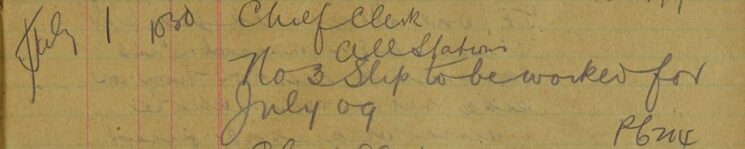 July 1 1030 Chief Clerk
All Stations
No 3 Slip to be worked for
July 09